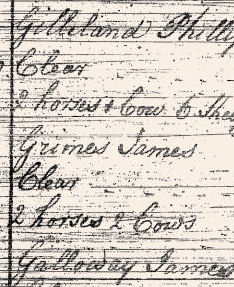 Gilleland Philip
Clear
2 horses 1 Cow 6 Shee
Grimes James
Clear
2 horses 2 Cows
Galloway James